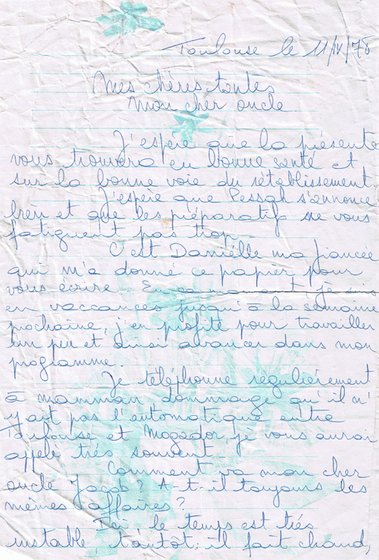 Toulouse le 11/IV/78
Mes chères tantes
Mon cher oncle
J'espère que la présente
vous trouvera en bonne santé et
sur la bonne voie du rétablissement
J'espère que Pessah s'annonce
bien et que les préparatifs ne vous
fatiguent pas trop.
C'est Danielle ma fiancée
qui m'a donné ce papier pour
vous écrire. je suis
en vacances jusqu'à la semaine
prochaine, j'en profite pour travailler
un peu et ainsi avancer dans mon
programme.
Je téléphone régulièrement
à mamman dommage qu'il n'
y ait pas l'automatique entre
Toulouse et Mogador, je vous aurai
appelé très souvent
Comment va mon cher
oncle Jacob A-t-il toujours des
mêmes affaires?
Ici le temps est très
instable tantôt il fait chaud,